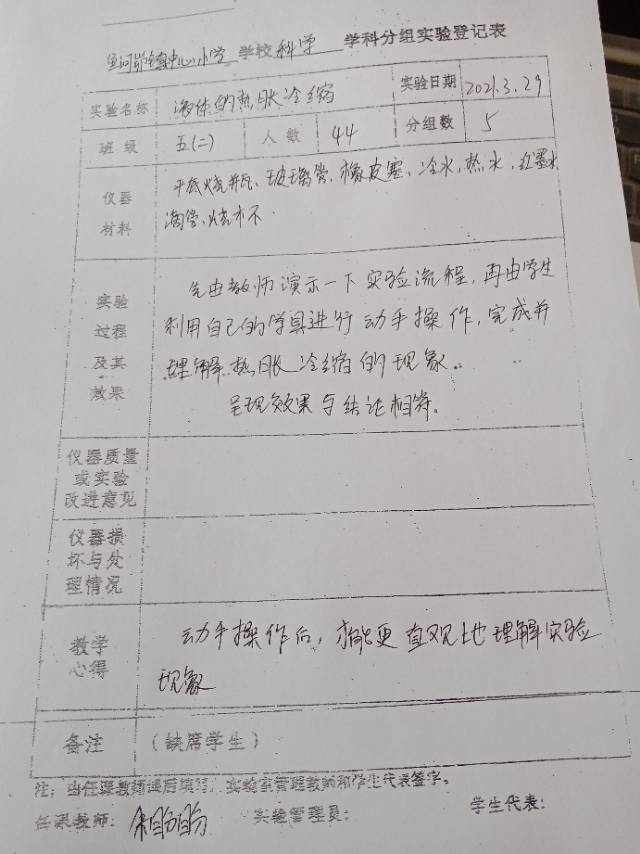 中心小学学校科学 学科分组实验登记表
实验名称 液体的热胀冷缩 实验日期 2021.3.29
班级 五(二) 人数 44 分组数 5
仪器材料 平底烧瓶、玻璃管、橡皮塞、冷水,热水,红墨水
滴管、烧杯.
实验过程及其效果 先由教师演示一下实验流程,再由学生
利用自己的学具进行动手操作,完成并
理解热胀冷缩的现象.
呈现效果与结论相符.
仪器质量
或实验
改进意见
仪器损
坏与处
理情况
教学心得 动手操作后,才能更直观地理解实验
现象
备注 (缺席学生)
注:由任课教师课后填写,实验室管理教师和学生代表签字。
任课教师: 实验管理员: 学生代表: